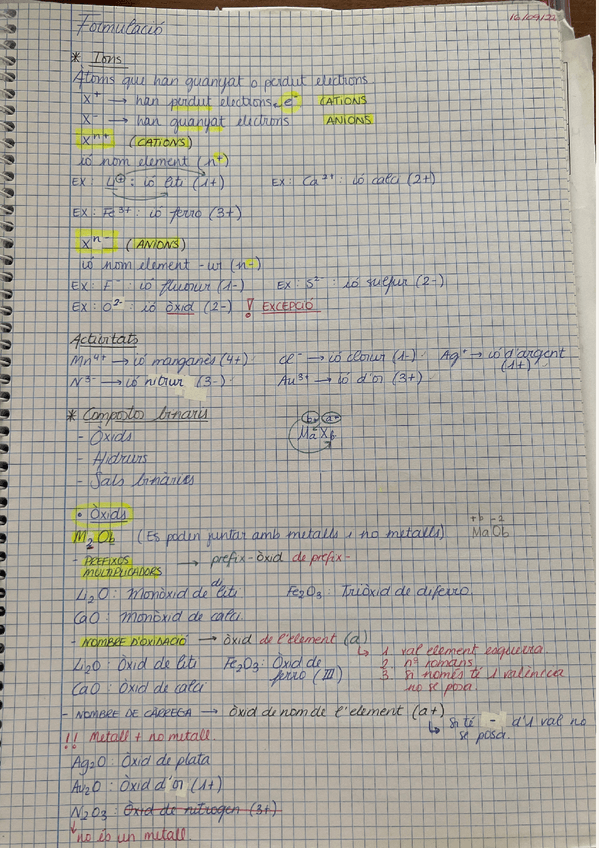 Formulació
* Ions
Àtoms que han guanyat o perdut electrons
X⁺ → han perdut electrons e⁻ CATIONS
X⁻ → han guanyat electrons ANIONS
Xⁿ⁺ (CATIONS)
ió nom element (n+)
EX: Li⁺: ió liti (1+) EX: Ca²⁺: ió calci (2+)
EX: Fe³⁺: ió ferro (3+)
Xⁿ⁻ (ANIONS)
ió nom element -ur (n-)
EX: F⁻: ió fluorur (1-) EX: S²⁻: ió sulfur (2-)
EX: O²⁻: ió òxid (2-) ! EXCEPCIÓ
Activitats
Mn⁴⁺ → ió manganès (4+) Cl⁻ → ió clorur (1-) Ag⁺ → ió d'argent (1+)
N³⁻ → ió nitrur (3-) Au³⁺ → ió d'or (3+)
* Compostos binaris
b+ a-
Ma Xb
- Òxids
- Hidrurs
- Sals binàries
• Òxids
+b -2
M₂Ob (Es poden juntar amb metalls i no metalls) MaOb
- PREFIXOS MULTIPLICADORS → prefix-òxid de prefix-
Li₂O: Monòxid de diliti Fe₂O₃: Triòxid de diferro.
CaO: Monòxid de calci.
- NOMBRE D'OXIDACIÓ → òxid de l'element (a)
↳ 1 val element esquerra.
2 nº romans
3 Si només té 1 valència no se posa.
Li₂O: Òxid de liti Fe₂O₃: Òxid de ferro (III)
CaO: Òxid de calci
- NOMBRE DE CÀRREGA → Òxid de nom de l'element (a+)
↳ Si té - d'1 val no se posa.
!! Metall + no metall
Ag₂O: Òxid de plata
Au₂O: Òxid d'or (1+)
N₂O₃: Òxid de nitrogen (3+)
↓ no és un metall